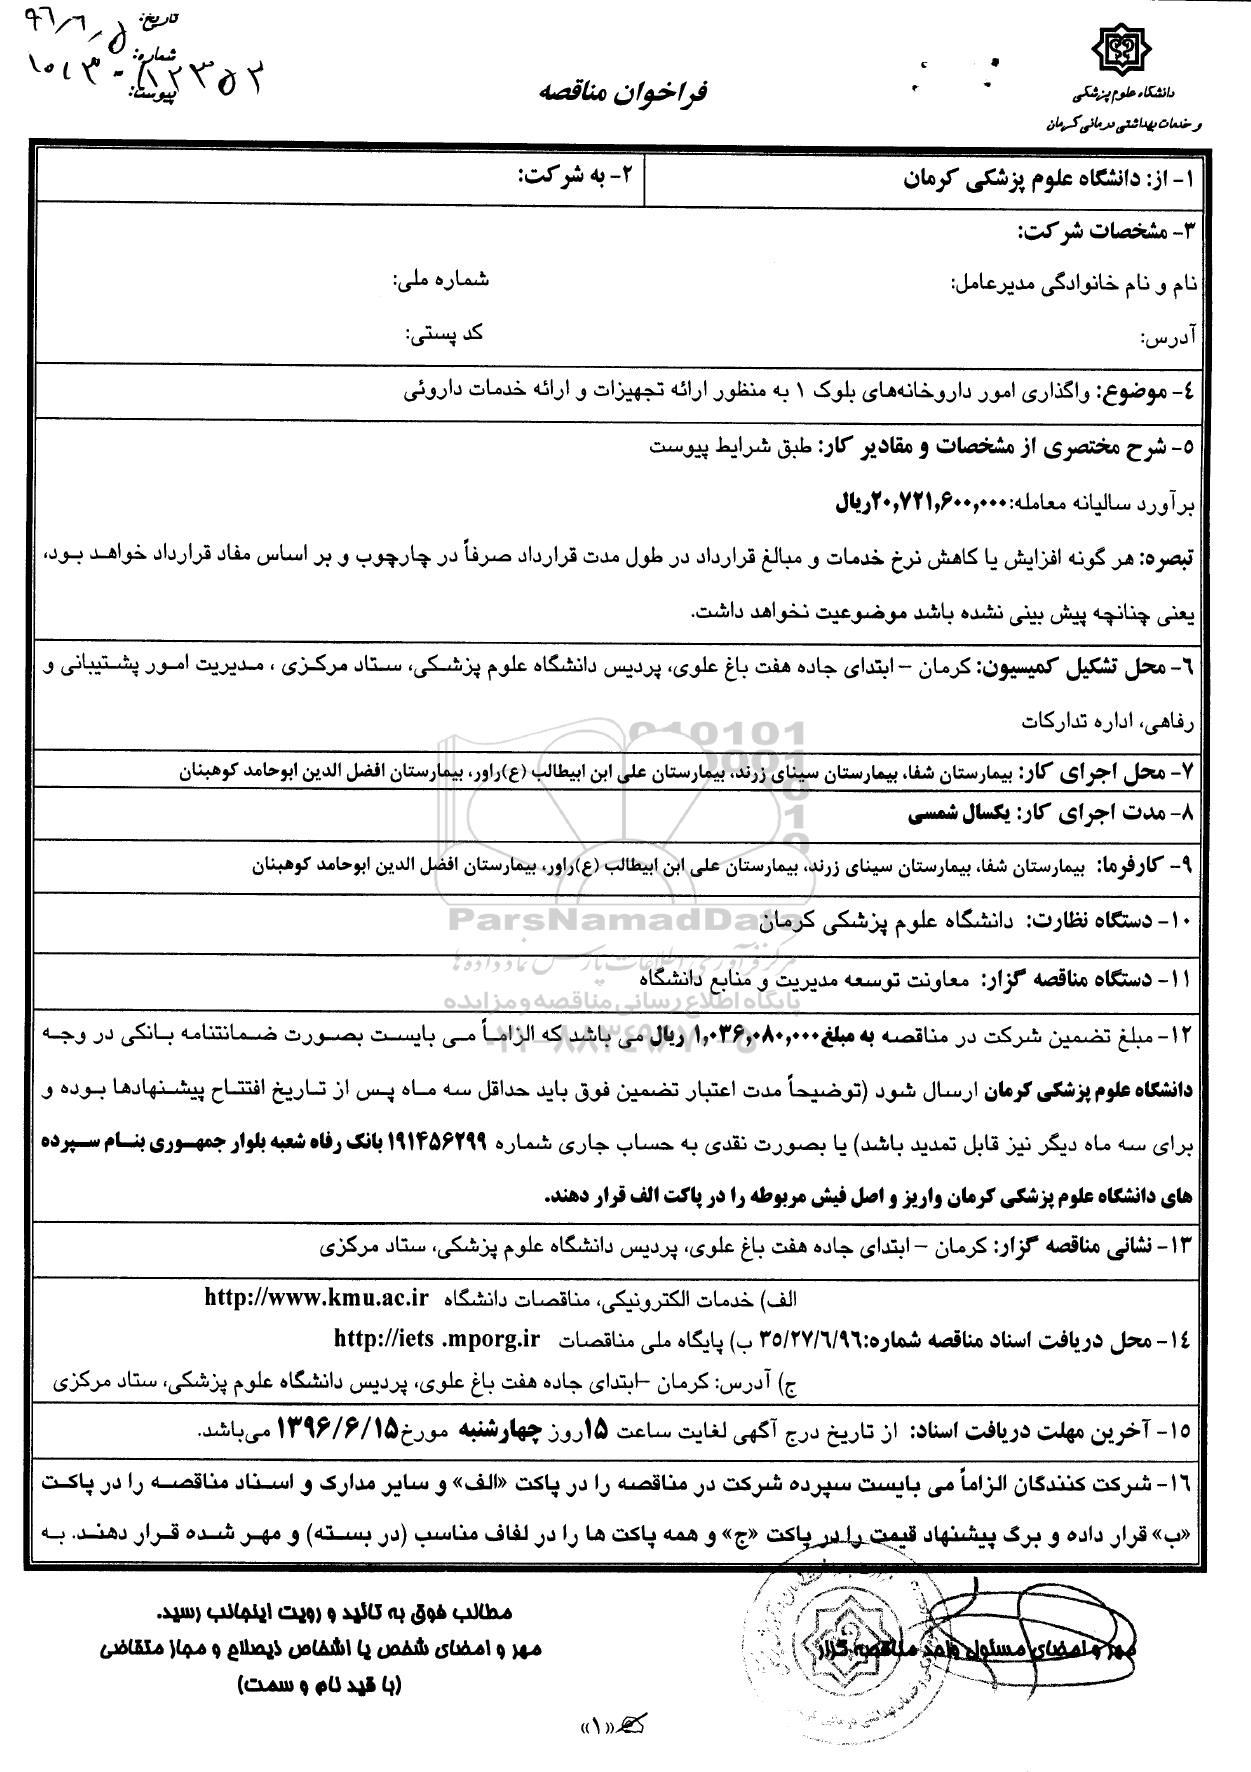 تاریخ: ۹۶/۶/۵
شماره:
پیوست:
دانشگاه علوم پزشکی
و خدمات بهداشتی درمانی کرمان
فراخوان مناقصه
۱- از: دانشگاه علوم پزشکی کرمان
۲- به شرکت:
۳- مشخصات شرکت:
نام و نام خانوادگی مدیرعامل: شماره ملی:
آدرس: کد پستی:
۴- موضوع: واگذاری امور داروخانه‌های بلوک ۱ به منظور ارائه تجهیزات و ارائه خدمات داروئی
۵- شرح مختصری از مشخصات و مقادیر کار: طبق شرایط پیوست
برآورد سالیانه معامله:۲۰,۷۲۱,۶۰۰,۰۰۰ریال
تبصره: هر گونه افزایش یا کاهش نرخ خدمات و مبالغ قرارداد در طول مدت قرارداد صرفاً در چارچوب و بر اساس مفاد قرارداد خواهد بود،
یعنی چنانچه پیش بینی نشده باشد موضوعیت نخواهد داشت.
۶- محل تشکیل کمیسیون: کرمان – ابتدای جاده هفت باغ علوی، پردیس دانشگاه علوم پزشکی، ستاد مرکزی ، مدیریت امور پشتیبانی و
رفاهی، اداره تدارکات
۷- محل اجرای کار: بیمارستان شفا، بیمارستان سینای زرند، بیمارستان علی ابن ابیطالب (ع)راور، بیمارستان افضل الدین ابوحامد کوهبنان
۸- مدت اجرای کار: یکسال شمسی
۹- کارفرما: بیمارستان شفا، بیمارستان سینای زرند، بیمارستان علی ابن ابیطالب (ع)راور، بیمارستان افضل الدین ابوحامد کوهبنان
ParsNamadData
۱۰- دستگاه نظارت: دانشگاه علوم پزشکی کرمان
مرکز فرآوری اطلاعات پارس نماد داده ها
۱۱- دستگاه مناقصه گزار: معاونت توسعه مدیریت و منابع دانشگاه
پایگاه اطلاع رسانی مناقصه و مزایده
۱۲- مبلغ تضمین شرکت در مناقصه به مبلغ۱,۰۳۶,۰۸۰,۰۰۰ ریال می باشد که الزاماً می بایست بصورت ضمانتنامه بانکی در وجه
دانشگاه علوم پزشکی کرمان ارسال شود (توضیحاً مدت اعتبار تضمین فوق باید حداقل سه ماه پس از تاریخ افتتاح پیشنهادها بوده و
برای سه ماه دیگر نیز قابل تمدید باشد) یا بصورت نقدی به حساب جاری شماره ۱۹۱۴۵۶۲۹۹ بانک رفاه شعبه بلوار جمهوری بنام سپرده
های دانشگاه علوم پزشکی کرمان واریز و اصل فیش مربوطه را در پاکت الف قرار دهند.
۱۳- نشانی مناقصه گزار: کرمان – ابتدای جاده هفت باغ علوی، پردیس دانشگاه علوم پزشکی، ستاد مرکزی
الف) خدمات الکترونیکی، مناقصات دانشگاه http://www.kmu.ac.ir
۱۴- محل دریافت اسناد مناقصه شماره:۳۵/۲۷/۶/۹۶ ب) پایگاه ملی مناقصات http://iets .mporg.ir
ج) آدرس: کرمان –ابتدای جاده هفت باغ علوی، پردیس دانشگاه علوم پزشکی، ستاد مرکزی
۱۵- آخرین مهلت دریافت اسناد: از تاریخ درج آگهی لغایت ساعت ۱۵روز چهارشنبه مورخ۱۳۹۶/۶/۱۵ می‌باشد.
۱۶- شرکت کنندگان الزاماً می بایست سپرده شرکت در مناقصه را در پاکت «الف» و سایر مدارک و اسناد مناقصه را در پاکت
«ب» قرار داده و برگ پیشنهاد قیمت را در پاکت «ج» و همه پاکت ها را در لفاف مناسب (در بسته) و مهر شده قرار دهند. به
مهر و امضای مسئول واحد مناقصه گزار
مطالب فوق به تائید و رویت اینجانب رسید.
مهر و امضای شخص یا اشخاص ذیصلاح و مجاز متقاضی
(با قید نام و سمت)
«۱»